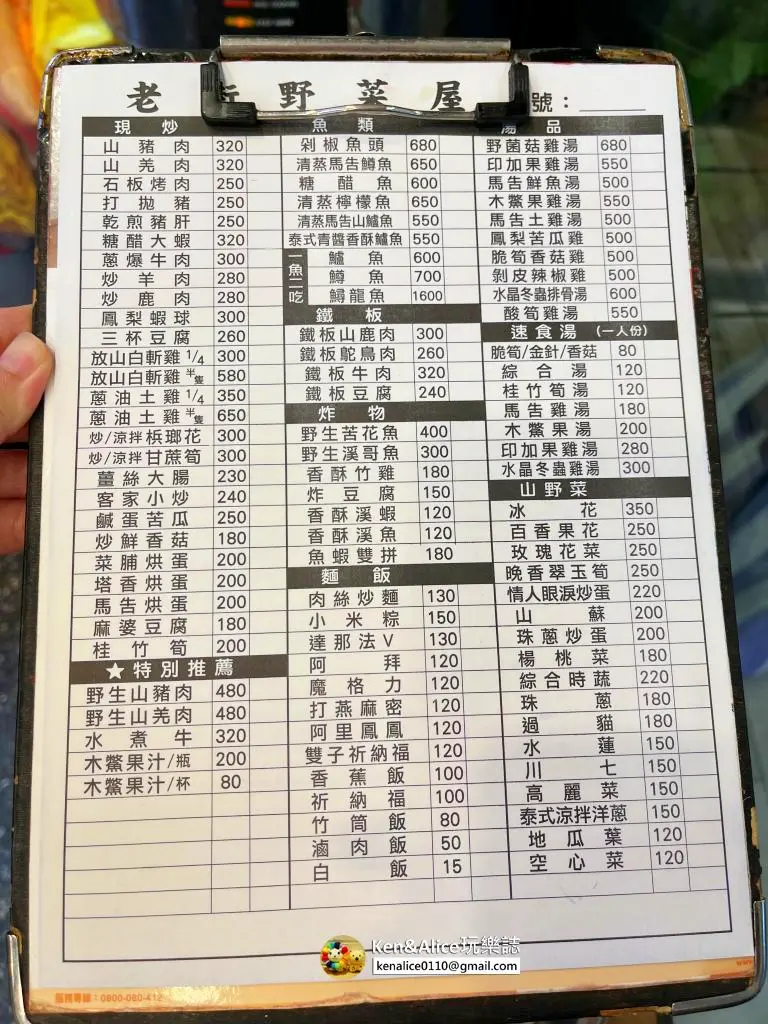 老 街 野 菜 屋
號：
現 炒
山豬肉 320
山羌肉 320
石板烤肉 250
打拋豬 250
乾煎豬肝 250
糖醋大蝦 320
蔥爆牛肉 300
炒羊肉 280
炒鹿肉 280
鳳梨蝦球 300
三杯豆腐 260
放山白斬雞1/4 300
放山白斬雞半隻 580
蔥油土雞1/4 350
蔥油土雞半隻 650
炒/涼拌梹瑯花 300
炒/涼拌甘蔗筍 300
薑絲大腸 230
客家小炒 240
鹹蛋苦瓜 250
炒鮮香菇 180
菜脯烘蛋 200
塔香烘蛋 200
馬告烘蛋 200
麻婆豆腐 180
桂竹筍 200
★特別推薦
野生山豬肉 480
野生山羌肉 480
水煮牛 320
木鱉果汁/瓶 200
木鱉果汁/杯 80
魚 類
剁椒魚頭 680
清蒸馬告鱒魚 650
糖醋魚 600
清蒸檸檬魚 650
清蒸馬告山鱸魚 550
泰式青醬香酥鱸魚 550
一魚二吃
鱸魚 600
鱒魚 700
鱘龍魚 1600
鐵 板
鐵板山鹿肉 300
鐵板鴕鳥肉 260
鐵板牛肉 320
鐵板豆腐 240
炸 物
野生苦花魚 400
野生溪哥魚 300
香酥竹雞 180
炸豆腐 150
香酥溪蝦 120
香酥溪魚 120
魚蝦雙拼 180
麵 飯
肉絲炒麵 130
小米粽 150
達那法V 130
阿拜 120
魔格力 120
打燕麻密 120
阿里鳳鳳 120
雙子祈納福 120
香蕉飯 100
祈納福 100
竹筒飯 80
滷肉飯 50
白飯 15
湯 品
野菌菇雞湯 680
印加果雞湯 550
馬告鮮魚湯 500
木鱉果雞湯 550
馬告土雞湯 500
鳳梨苦瓜雞 500
脆筍香菇雞 500
剝皮辣椒雞 500
水晶冬蟲排骨湯 600
酸筍雞湯 550
速食湯（一人份）
脆筍/金針/香菇 80
綜合湯 120
桂竹筍湯 120
馬告雞湯 180
木鱉果湯 200
印加果雞湯 280
水晶冬蟲雞湯 300
山野菜
冰花 350
百香果花 250
玫瑰花菜 250
晚香翠玉筍 250
情人眼淚炒蛋 220
山蘇 200
珠蔥炒蛋 200
楊桃菜 180
綜合時蔬 220
珠蔥 180
過貓 180
水蓮 150
川七 150
高麗菜 150
泰式涼拌洋蔥 150
地瓜葉 120
空心菜 120
Ken&Alice玩樂誌
kenalice0110@gmail.com
服務專線：0800-080-412